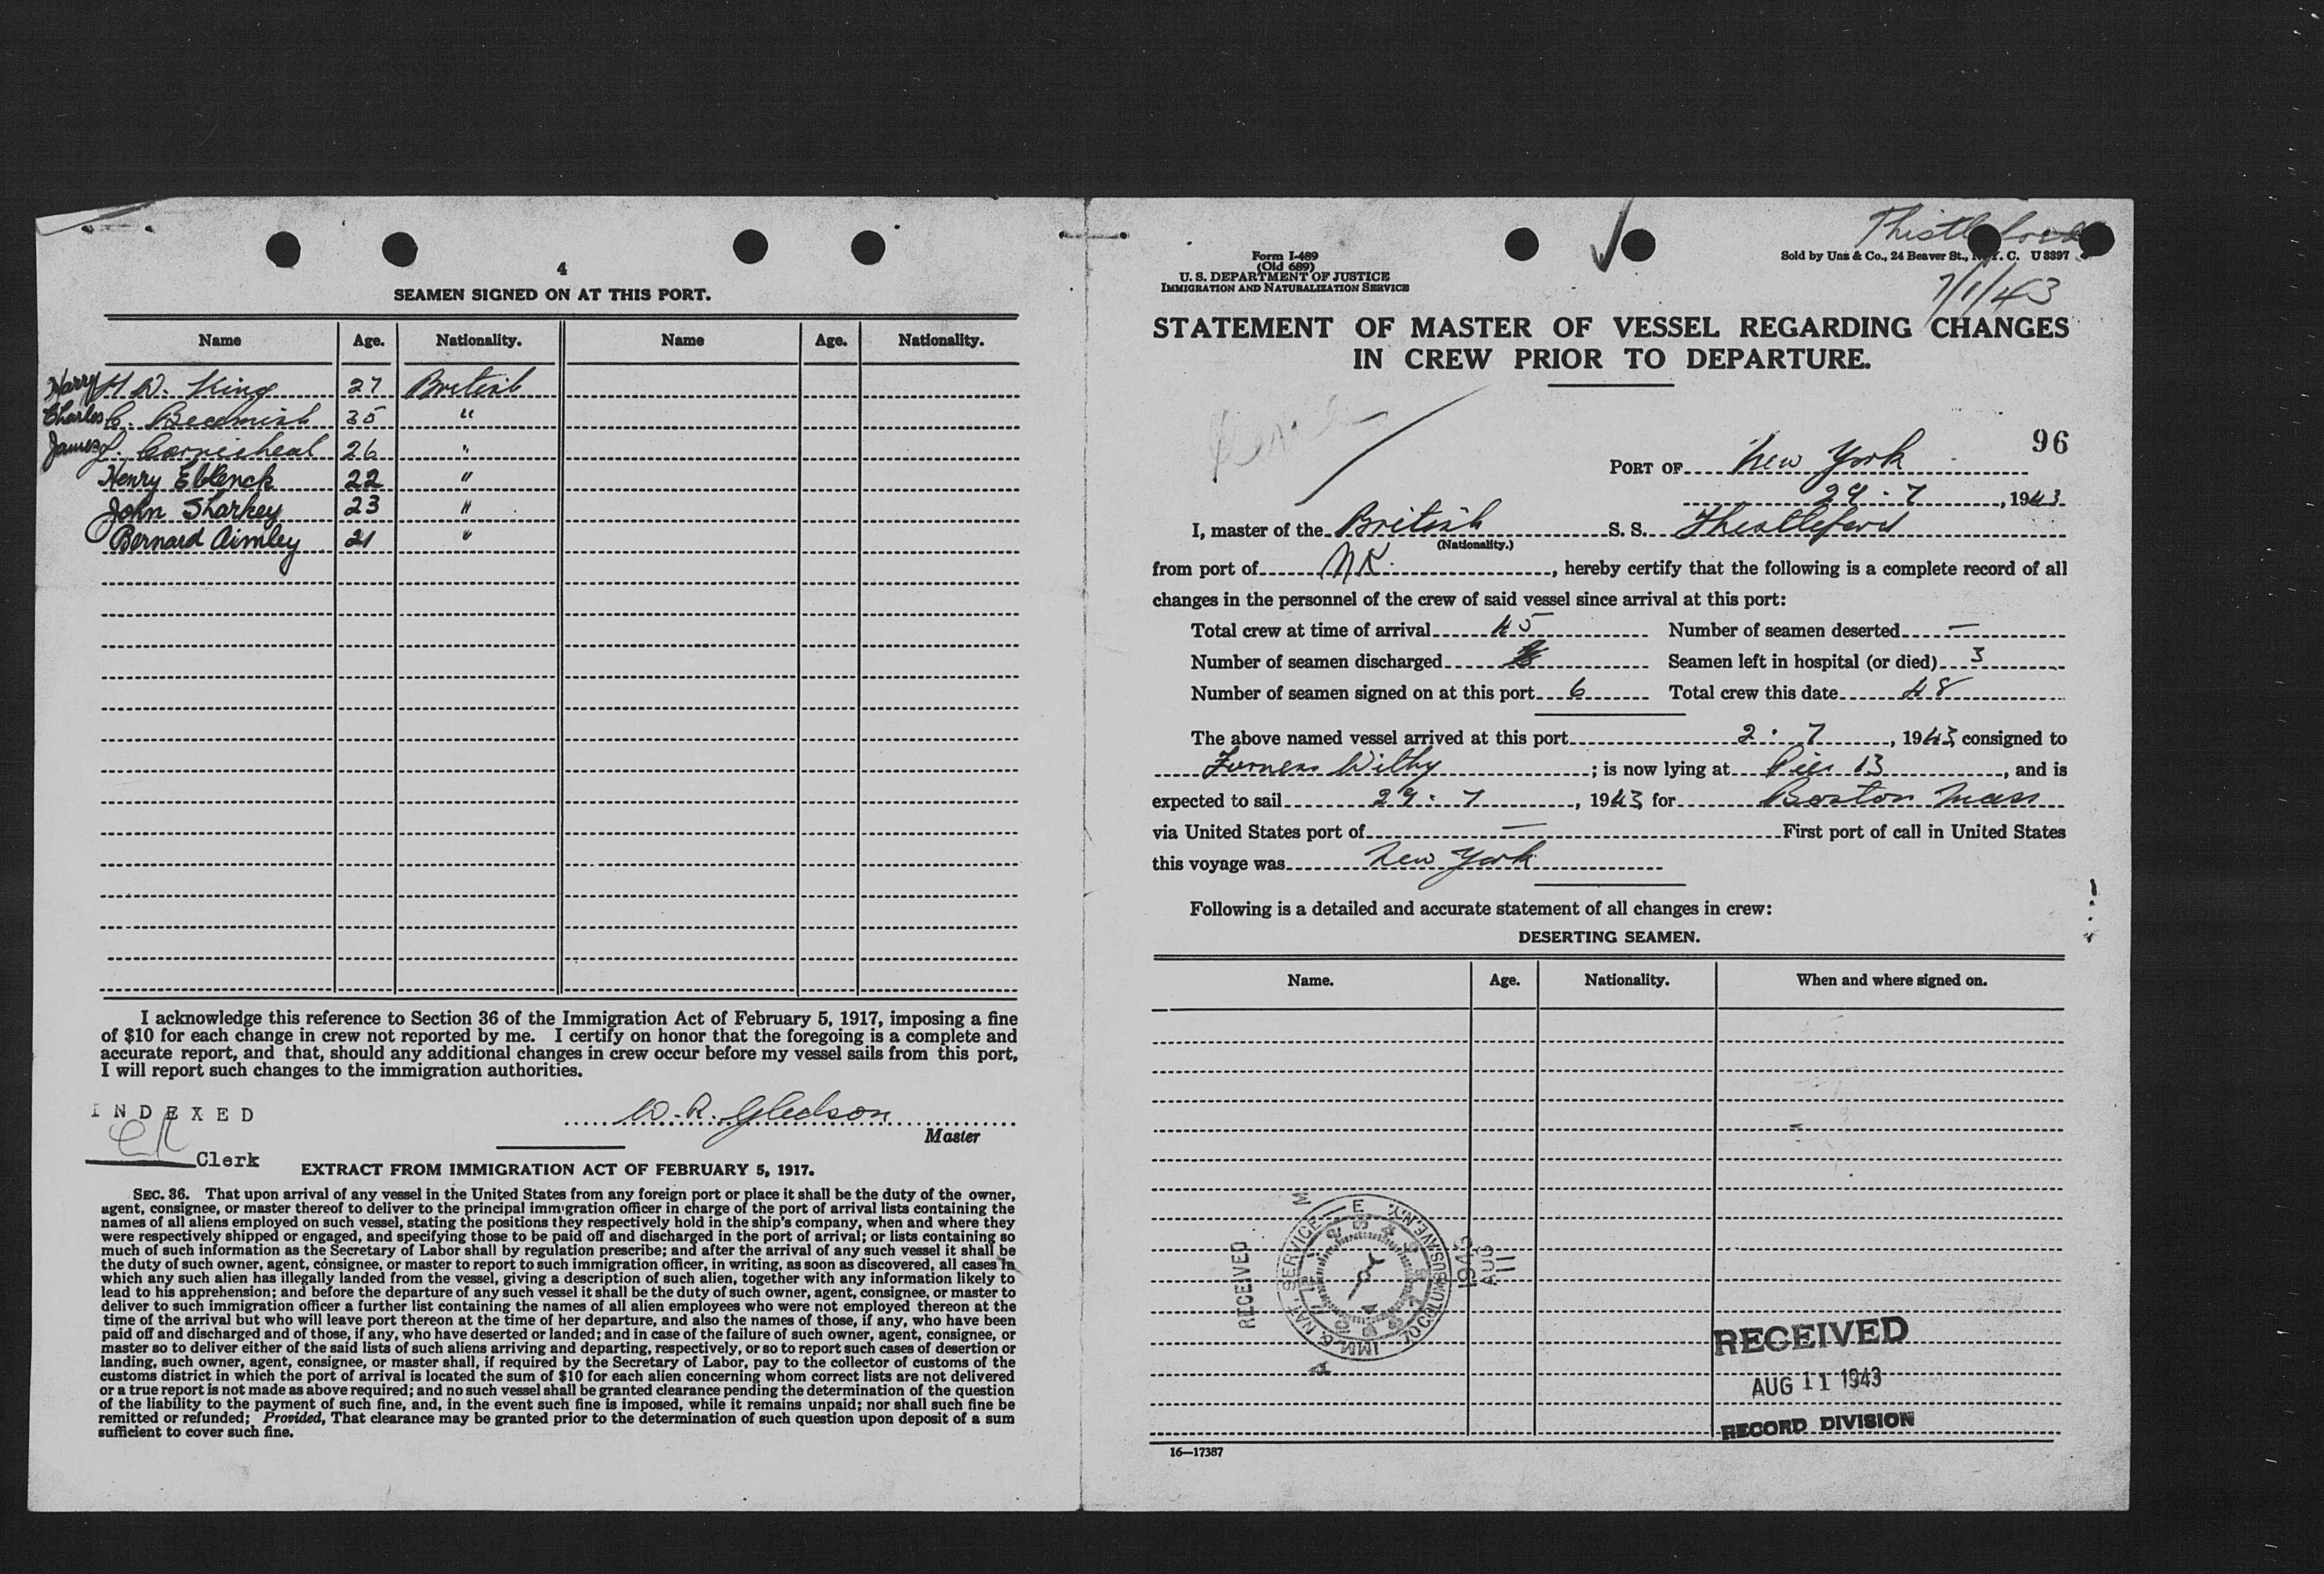 4
SEAMEN SIGNED ON AT THIS PORT.
Name Age. Nationality. Name Age. Nationality.
Harry H. W. King 27 British
Charles C. Beemish 35 "
James J. Carmicheal 26 "
Henry Eblenck 22 "
John Sharkey 23 "
Bernard Aimley 21 "
I acknowledge this reference to Section 36 of the Immigration Act of February 5, 1917, imposing a fine
of $10 for each change in crew not reported by me. I certify on honor that the foregoing is a complete and
accurate report, and that, should any additional changes in crew occur before my vessel sails from this port,
I will report such changes to the immigration authorities.
INDEXED
W. R. Gledson
Master
Clerk
EXTRACT FROM IMMIGRATION ACT OF FEBRUARY 5, 1917.
SEC. 36. That upon arrival of any vessel in the United States from any foreign port or place it shall be the duty of the owner,
agent, consignee, or master thereof to deliver to the principal immigration officer in charge of the port of arrival lists containing the
names of all aliens employed on such vessel, stating the positions they respectively hold in the ship's company, when and where they
were respectively shipped or engaged, and specifying those to be paid off and discharged in the port of arrival; or lists containing so
much of such information as the Secretary of Labor shall by regulation prescribe; and after the arrival of any such vessel it shall be
the duty of such owner, agent, consignee, or master to report to such immigration officer, in writing, as soon as discovered, all cases in
which any such alien has illegally landed from the vessel, giving a description of such alien, together with any information likely to
lead to his apprehension; and before the departure of any such vessel it shall be the duty of such owner, agent, consignee, or master to
deliver to such immigration officer a further list containing the names of all alien employees who were not employed thereon at the
time of the arrival but who will leave port thereon at the time of her departure, and also the names of those, if any, who have been
paid off and discharged and of those, if any, who have deserted or landed; and in case of the failure of such owner, agent, consignee, or
master so to deliver either of the said lists of such aliens arriving and departing, respectively, or so to report such cases of desertion or
landing, such owner, agent, consignee, or master shall, if required by the Secretary of Labor, pay to the collector of customs of the
customs district in which the port of arrival is located the sum of $10 for each alien concerning whom correct lists are not delivered
or a true report is not made as above required; and no such vessel shall be granted clearance pending the determination of the question
of the liability to the payment of such fine, and, in the event such fine is imposed, while it remains unpaid; nor shall such fine be
remitted or refunded; Provided, That clearance may be granted prior to the determination of such question upon deposit of a sum
sufficient to cover such fine.
Form I-489
(Old 689)
U. S. DEPARTMENT OF JUSTICE
IMMIGRATION AND NATURALIZATION SERVICE
Sold by Unz & Co., 24 Beaver St., N. Y. C. U 8397
7/1/43
STATEMENT OF MASTER OF VESSEL REGARDING CHANGES
IN CREW PRIOR TO DEPARTURE.
96
PORT OF New York
29 . 7, 1943
I, master of the British S. S. Thistleford
(Nationality.)
from port of UK., hereby certify that the following is a complete record of all
changes in the personnel of the crew of said vessel since arrival at this port:
Total crew at time of arrival 45 Number of seamen deserted —
Number of seamen discharged Seamen left in hospital (or died) 3
Number of seamen signed on at this port 6 Total crew this date 48
The above named vessel arrived at this port 2 . 7, 1943, consigned to
Furness Withy; is now lying at Pier 13, and is
expected to sail 29 . 7, 1943, for Boston Mass
via United States port of — First port of call in United States
this voyage was New York
Following is a detailed and accurate statement of all changes in crew:
DESERTING SEAMEN.
Name. Age. Nationality. When and where signed on.
RECEIVED
IMM. & NAT. SERVICE — 70 COLUMBUS AVE. N.Y.
1943 AUG 11
RECEIVED
AUG 11 1943
RECORD DIVISION
16—17387